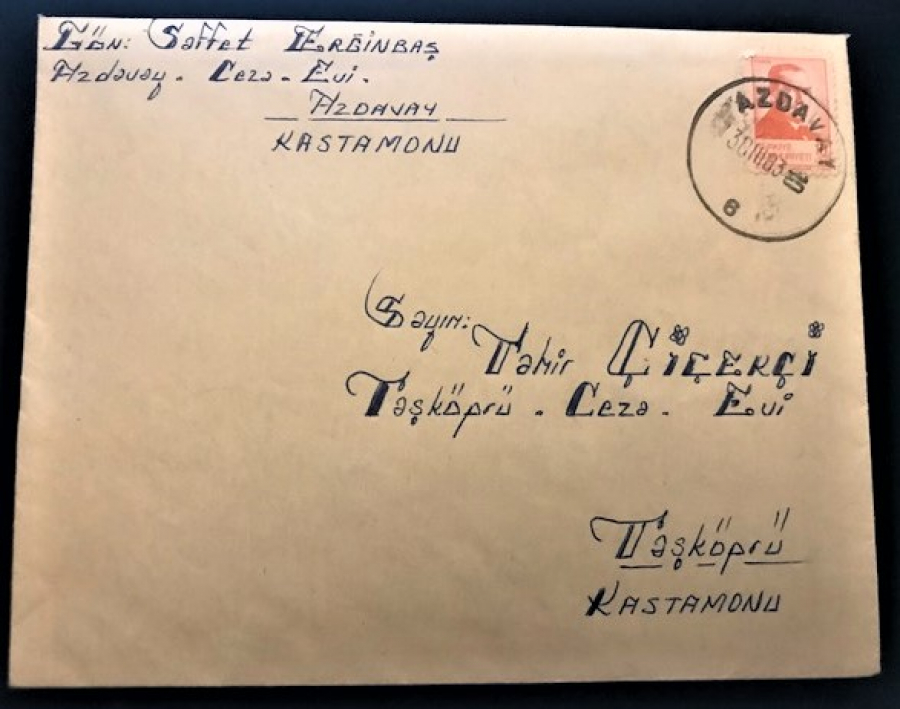 Gön: Saffet ERGİNBAŞ
Azdavay. Ceza. Evi.
AZDAVAY
KASTAMONU
AZDAVAY
6
Sayın:
Tahir ÇİÇEKÇİ
Taşköprü. Ceza. Evi
Taşköprü
KASTAMONU